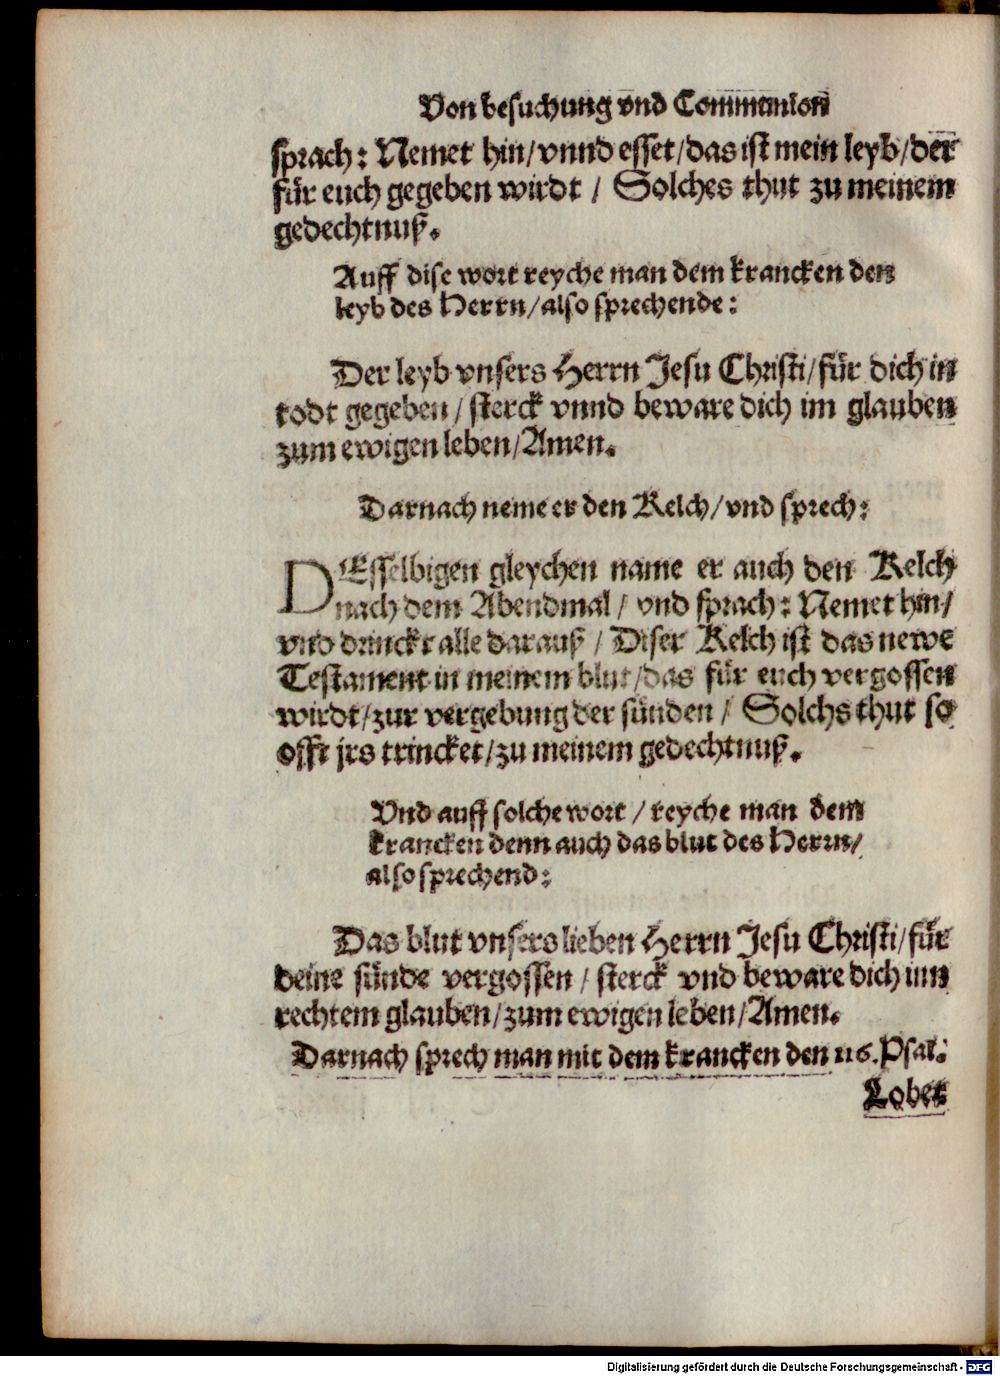 Von besuchung vnd Communion
sprach: Nemet hin/vnnd esset/das ist mein leyb/der
für euch gegeben wirdt / Solches thut zu meinem
gedechtnuß.
Auff dise wort reyche man dem krancken den
leyb des Herrn/also sprechende:
Der leyb vnsers Herrn Jesu Christi/für dich in
todt gegeben/sterck vnnd beware dich im glauben
zum ewigen leben/Amen.
Darnach neme er den Kelch/vnd sprech:
DEsselbigen gleychen name er auch den Kelch
nach dem Abendmal/ vnd sprach: Nemet hin/
vnd drinckt alle darauß / Diser Kelch ist das newe
Testament in meinem blut/das für euch vergossen
wirdt/zur vergebung der sünden / Solchs thut so
offt jrs trincket/zu meinem gedechtnuß.
Vnd auff solche wort / reyche man dem
krancken denn auch das blut des Herrn/
also sprechend:
Das blut vnsers lieben Herrn Jesu Christi/für
deine sünde vergossen / sterck vnd beware dich inn
rechtem glauben/zum ewigen leben/Amen.
Darnach sprech man mit dem krancken den 116. Psal:
Lobet
Digitalisierung gefördert durch die Deutsche Forschungsgemeinschaft - DFG